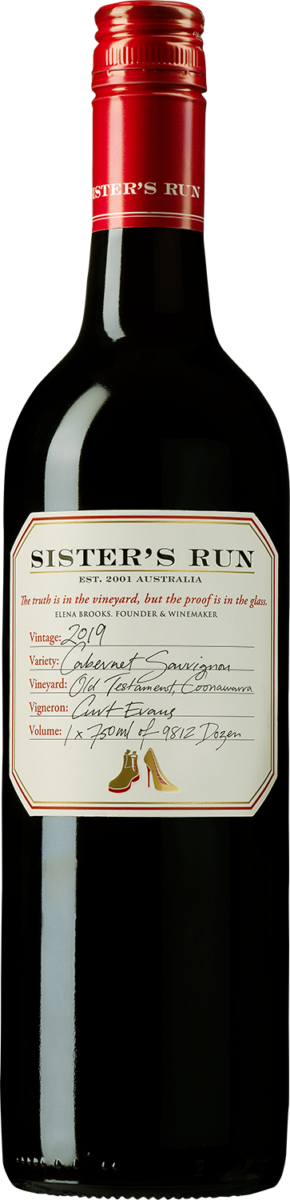 ISTER'S RUN
SISTER'S RUN
EST. 2001 AUSTRALIA
The truth is in the vineyard, but the proof is in the glass.
ELENA BROOKS. FOUNDER & WINEMAKER
Vintage: 2019
Variety: Cabernet Sauvignon
Vineyard: Old Testament, Coonawarra
Vigneron: Curt Evans
Volume: 1 x 750ml of 9812 Dozen